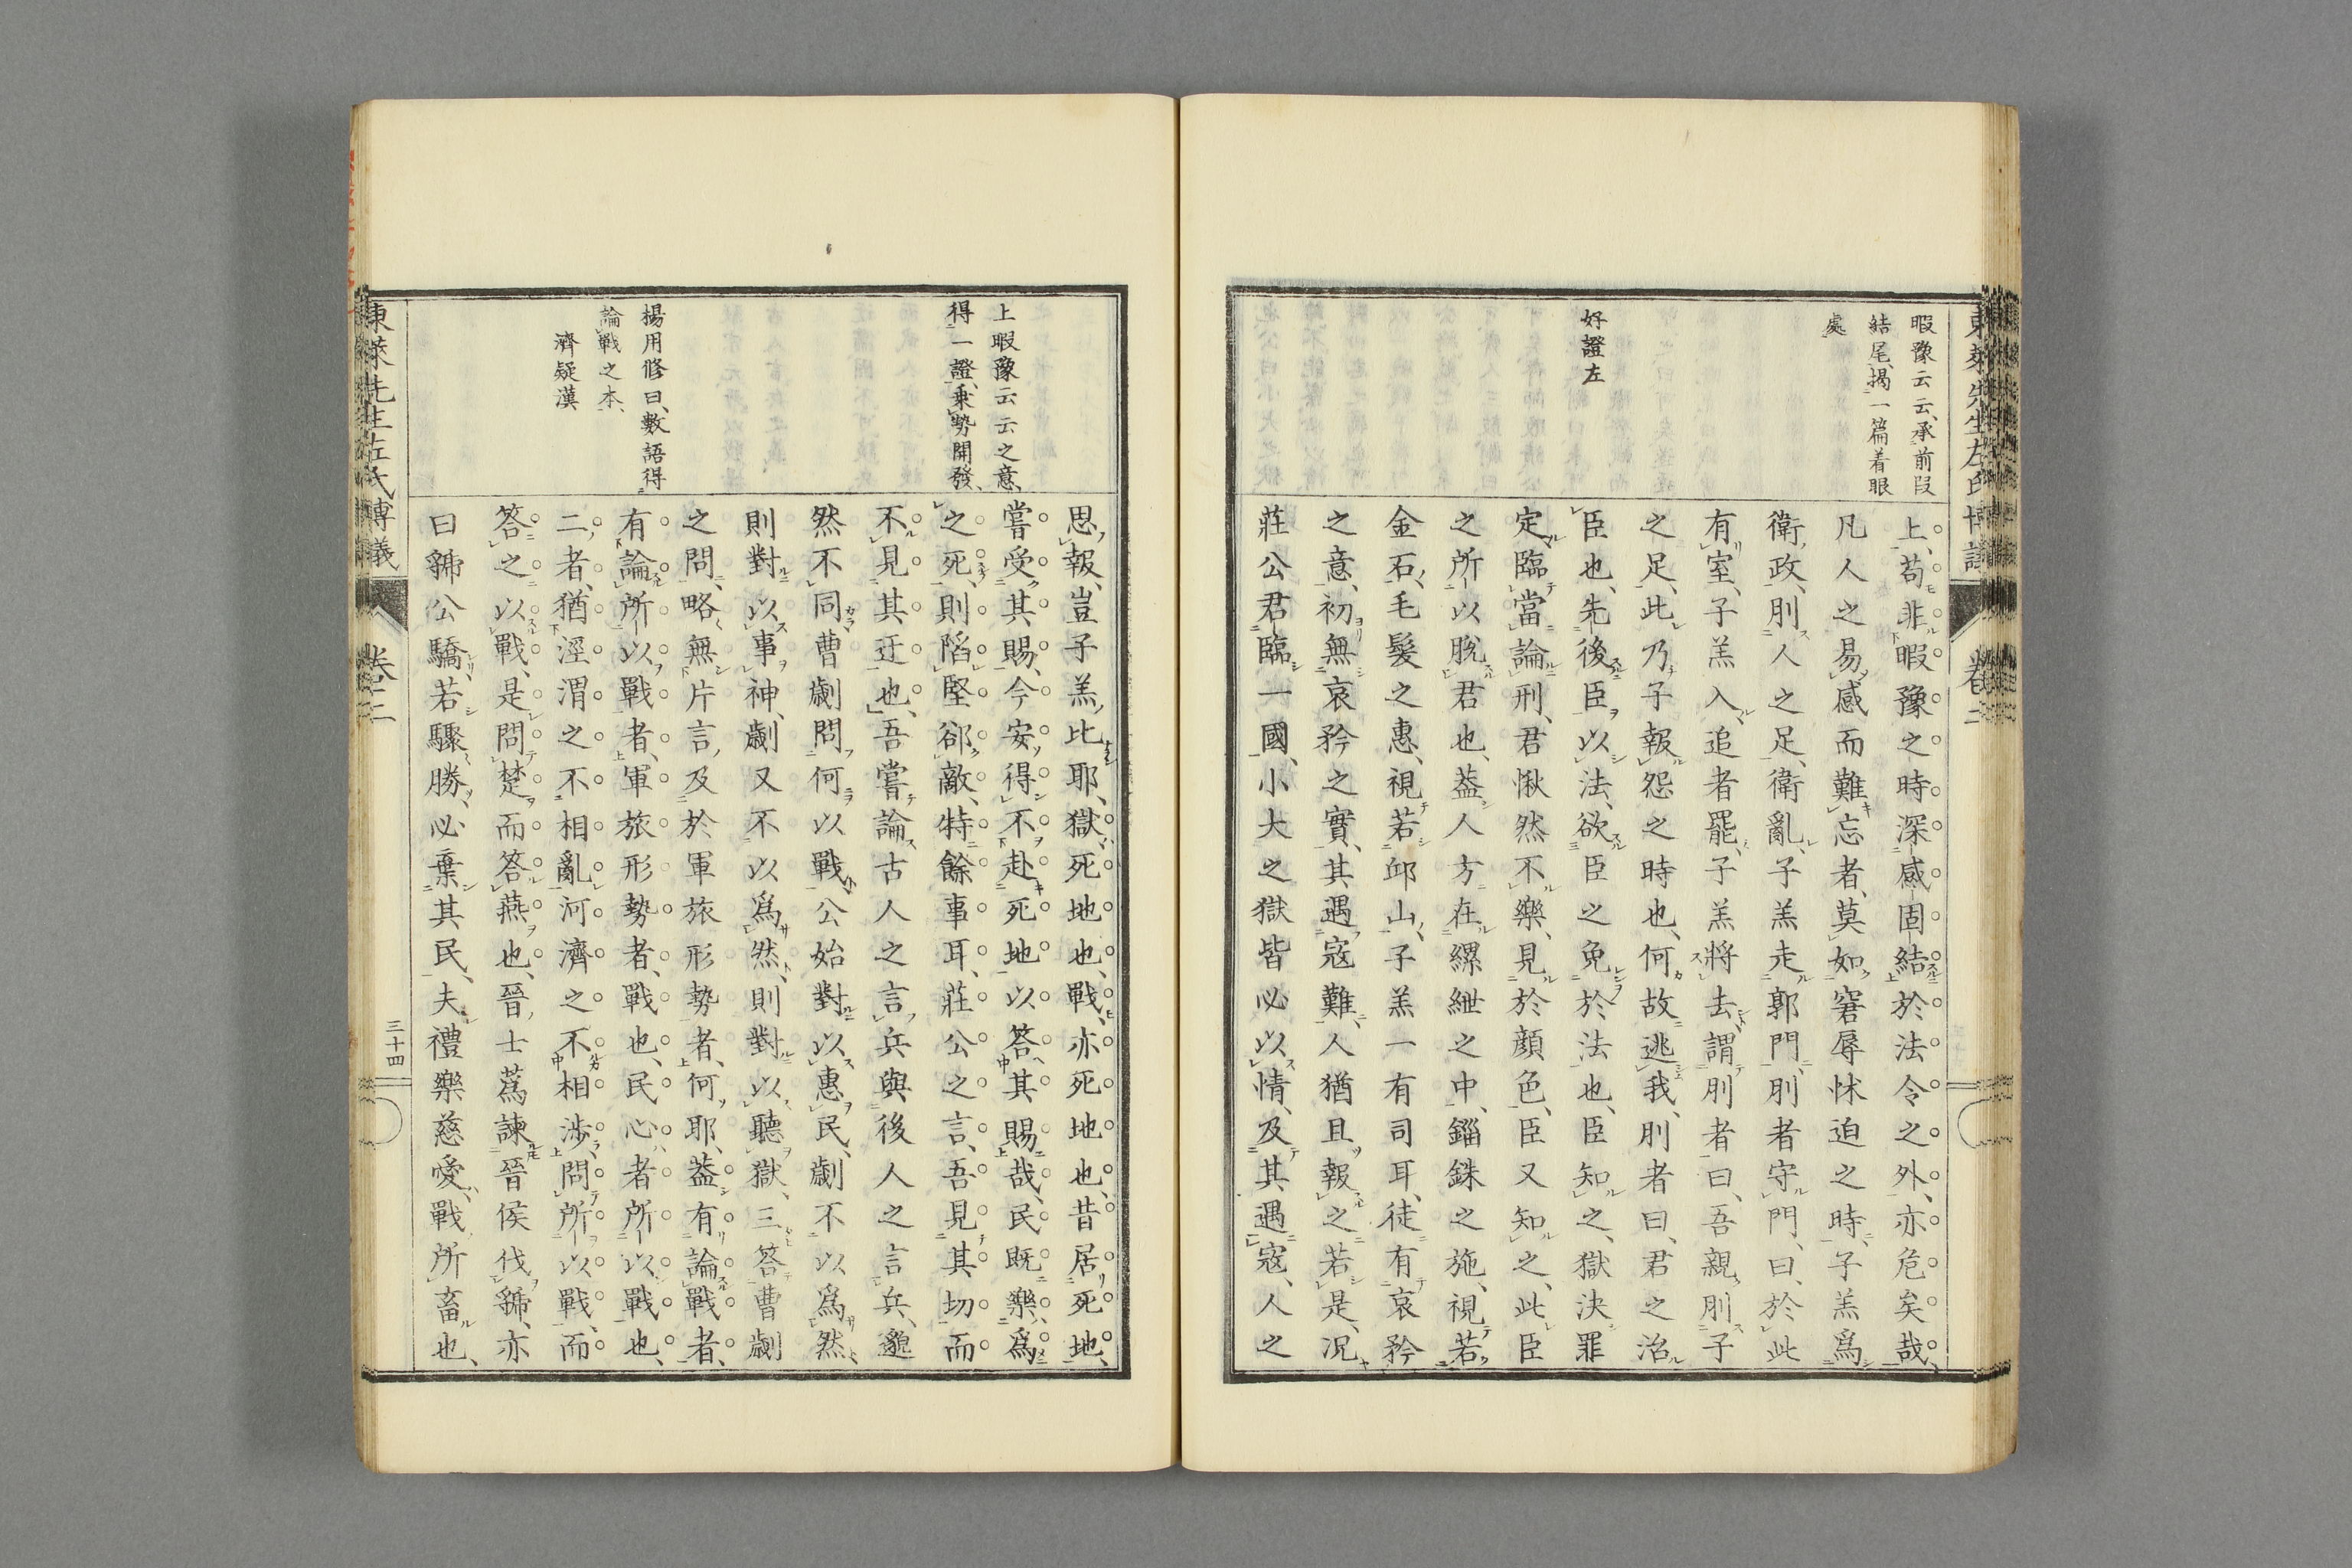 東萊先生左氏博議
卷二
暇豫云云、承前段
結尾、揭一篇着眼
處
好證左
上、苟非暇豫之時深感固結於法令之外、亦危矣哉、
凡人之易感而難忘者、莫如窘辱怵迫之時、子羔爲
衛政、刖人之足、衛亂、子羔走郭門、刖者守門、曰、於此
有室、子羔入、追者罷、子羔將去、謂刖者曰、吾親刖子
之足、此乃子報怨之時也、何故逃我、刖者曰、君之治
臣也、先後臣以法、欲臣之免於法也、臣知之、獄決罪
定、臨當論刑、君愀然不樂、見於顔色、臣又知之、此臣
之所以脫君也、葢人方在縲紲之中、錙銖之施、視若
金石、毛髮之惠、視若邱山、子羔一有司耳、徒有哀矜
之意、初無哀矜之實、其遇寇難、人猶且報之若是、況
莊公君臨一國、小大之獄皆必以情、及其遇寇、人之
上暇豫云云之意、
得一證、乗勢開發、
楊用修曰、數語得
論戰之本、
濟疑漢
思報、豈子羔比耶、獄、死地也、戰、亦死地也、昔居死地、
嘗受其賜、今安得不赴死地以答其賜哉、民既樂爲
之死、則陷堅郤敵、特餘事耳、莊公之言、吾見其切而
不見其迂也、吾嘗論古人之言兵與後人之言兵、邈
然不同、曹劌問何以戰、公始對以惠民、劌不以爲然、
則對以事神、劌又不以爲然、則對以聽獄、三答曹劌
之問、略無片言及於軍旅形勢者、何耶、葢有論戰者、
有論所以戰者、軍旅形勢者、戰也、民心者所以戰也、
二者、猶涇渭之不相亂、河濟之不相涉、問所以戰、而
答之以戰、是問楚而答燕也、晉士蔿諫晉侯伐虢、亦
曰虢公驕、若驟勝、必棄其民、夫禮樂慈愛、戰所畜也、
東萊先生左氏博議
卷二
三十四